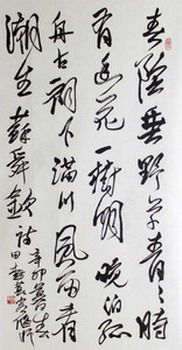 春陰垂野草青々時
有幽花一樹明晚泊孤
舟古祠下滿川風雨看
潮生蘇舜欽詩
辛卯暮春
田書偃師